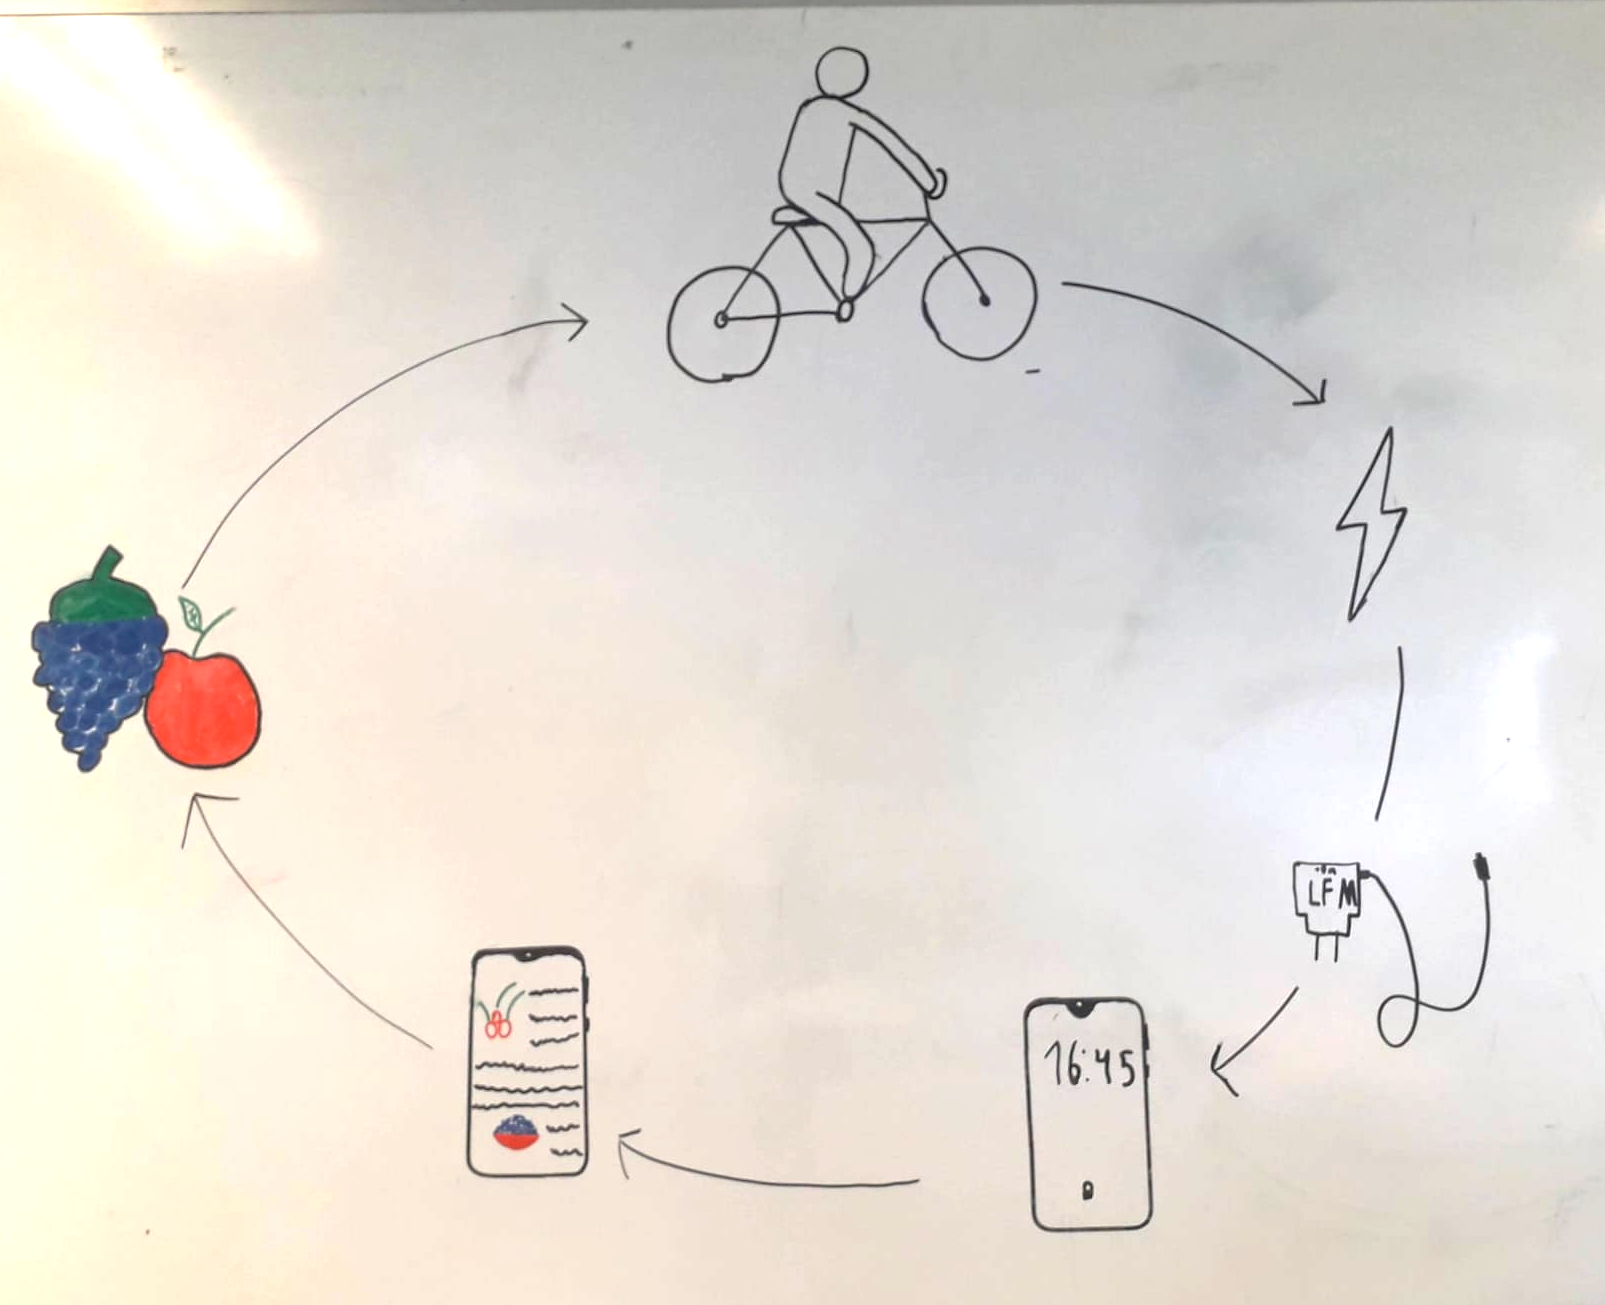 LFM
16:45